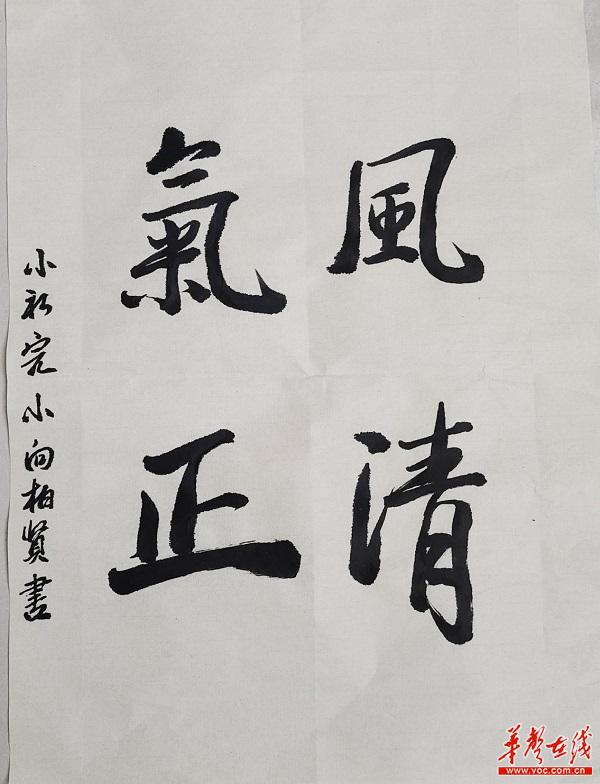 風清
氣正
小初完小向柏賢書
華聲在线
www.voc.com.cn